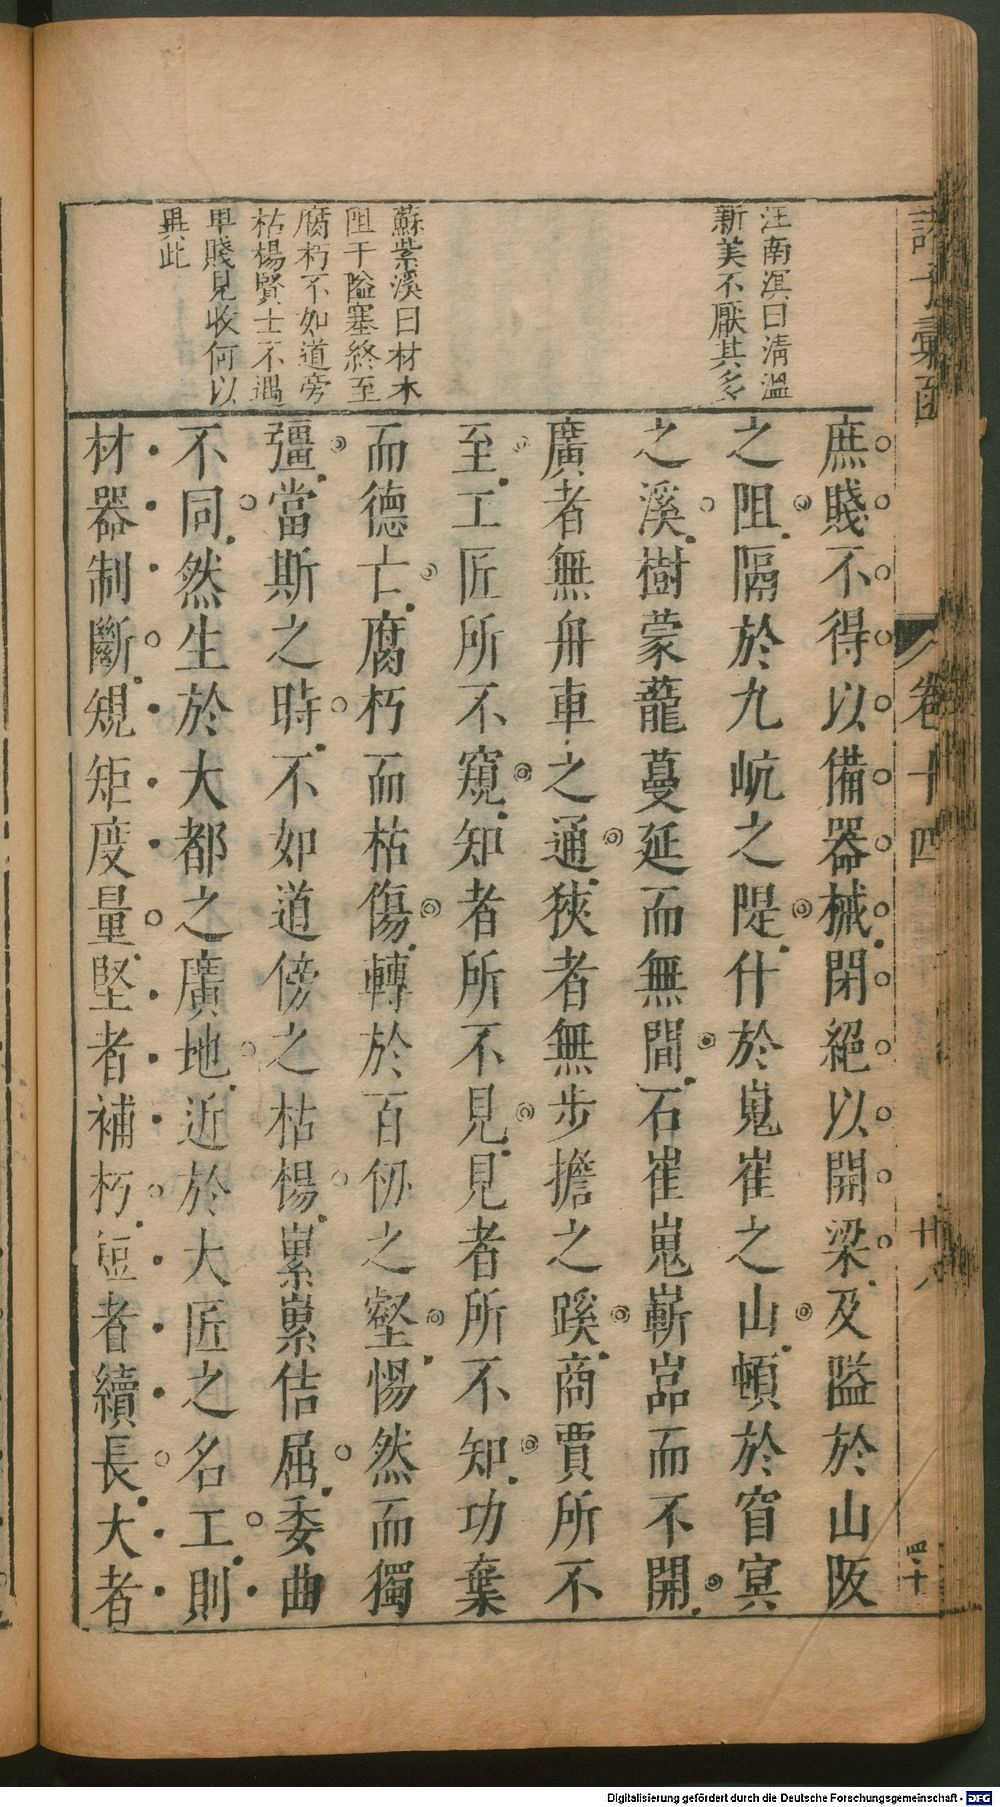 汪南溟曰淸溫
新美不厭其多
蘇紫溪曰材木
阻于隘塞終至
腐朽不如道旁
枯楊賢士不遇
卑賤見收何以
異此
庶賤不得以備器械閉絕以開梁及隘於山阪
之阻隔於九岏之隄什於嵬崔之山頓於窅冥
之溪樹蒙蘢蔓延而無間石崔嵬嶄嵓而不開
廣者無舟車之通狹者無步擔之蹊商賈所不
至工匠所不窺知者所不見見者所不知功棄
而德亡腐朽而枯傷轉於百仞之壑惕然而獨
彊當斯之時不如道傍之枯楊累累佶屈委曲
不同然生於大都之廣地近於大匠之名工則
材器制斷規矩度量堅者補朽短者續長大者
諸子彙函
卷十四
廿八
四十
Digitalisierung gefördert durch die Deutsche Forschungsgemeinschaft - DFG